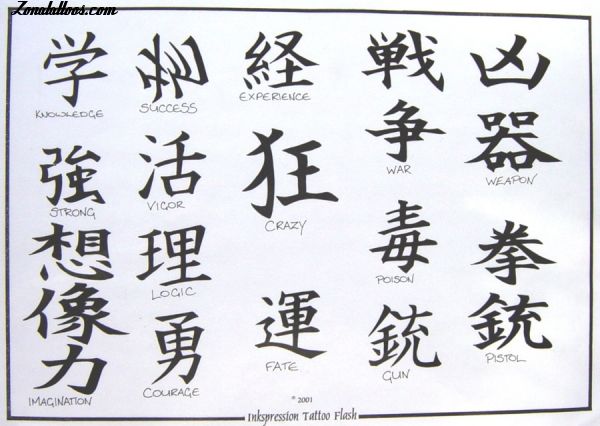 Zonatattoos.com
学
KNOWLEDGE
強
STRONG
想
像
力
IMAGINATION
SUCCESS
活
VIGOR
理
LOGIC
勇
COURAGE
経
EXPERIENCE
狂
CRAZY
運
FATE
戦
争
WAR
毒
POISON
銃
GUN
凶
器
WEAPON
拳
銃
PISTOL
© 2001
Inkspression Tattoo Flash